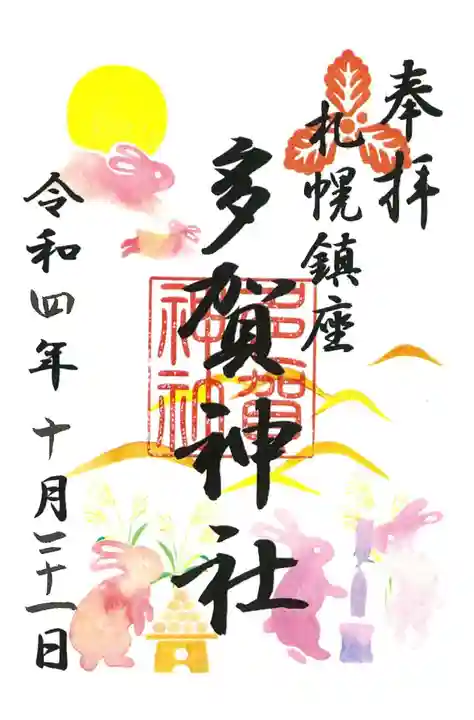 奉拝
札幌鎮座
多賀神社
令和四年十月二十一日